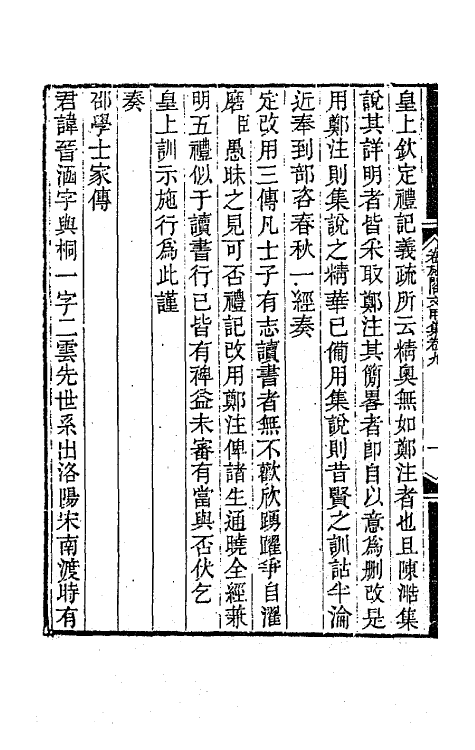 皇上欽定禮記義疏所云精奥無如鄭注者也且陳澔集
說其詳明者皆采取鄭注其簡畧者卽自以意爲删改是
用鄭注則集說之精華已備用集說則昔賢之訓詁半淪
近奉到部咨春秋一經奏
定改用三傳凡士子有志讀書者無不歡欣踴躍爭自濯
磨臣愚昧之見可否禮記改用鄭注俾諸生通曉全經兼
明五禮似于讀書行已皆有裨益未審有當與否伏乞
皇上訓示施行爲此謹
奏
邵學士家傳
君諱晉涵字與桐一字二雲先世系出洛陽宋南渡時有
卷施閣文甲集卷九